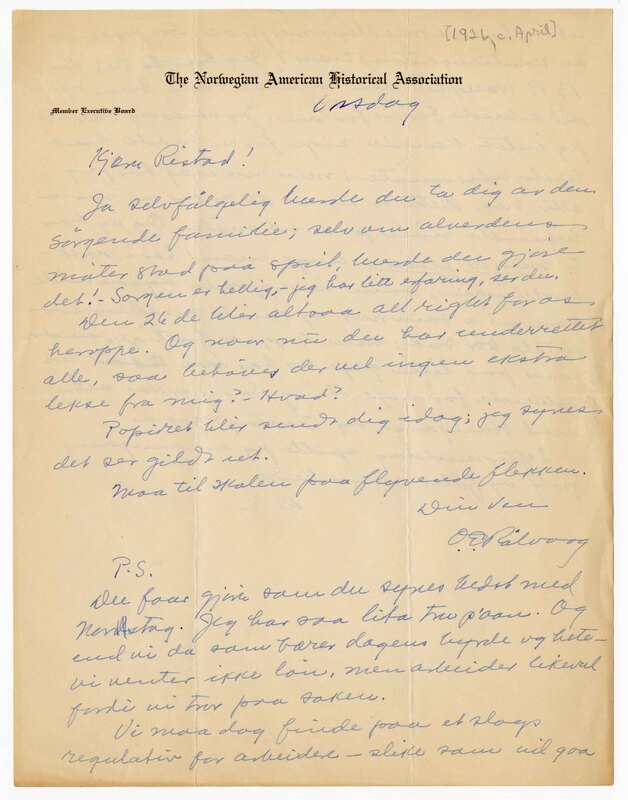 [1926, c. April]
The Norwegian American Historical Association
Member Executive Board
Onsdag
Kjære Ristad!
Ja selvfølgelig burde du ta dig av den
sørgende familie; selv om alverdens
møter stod paa spil, burde du gjøre
det! - Sorgen er hellig, - jeg har litt efaring, ser du.
Den 26de blir altsaa all right for os
heroppe. Og naar nu du har underrettet
alle, saa behøves der vel ingen ekstra
lekse fra mig? - Hvad?
Papiret blir sendt dig idag; jeg synes
det ser gildt ut.
Maa til skolen paa flyvende flekken.
Din ven
O.E. Rølvaag
P.S.
Du faar gjøre som du synes bedst med
Norstog. Jeg har saa lita tru p'aan. Og
end vi da som bærer dagens byrde og hete -
vi venter ikke løn, men arbeider likevel
fordi vi tror paa saken.
Vi maa dog finde paa et slags
regulativ for arbeidere - slike som vil gaa